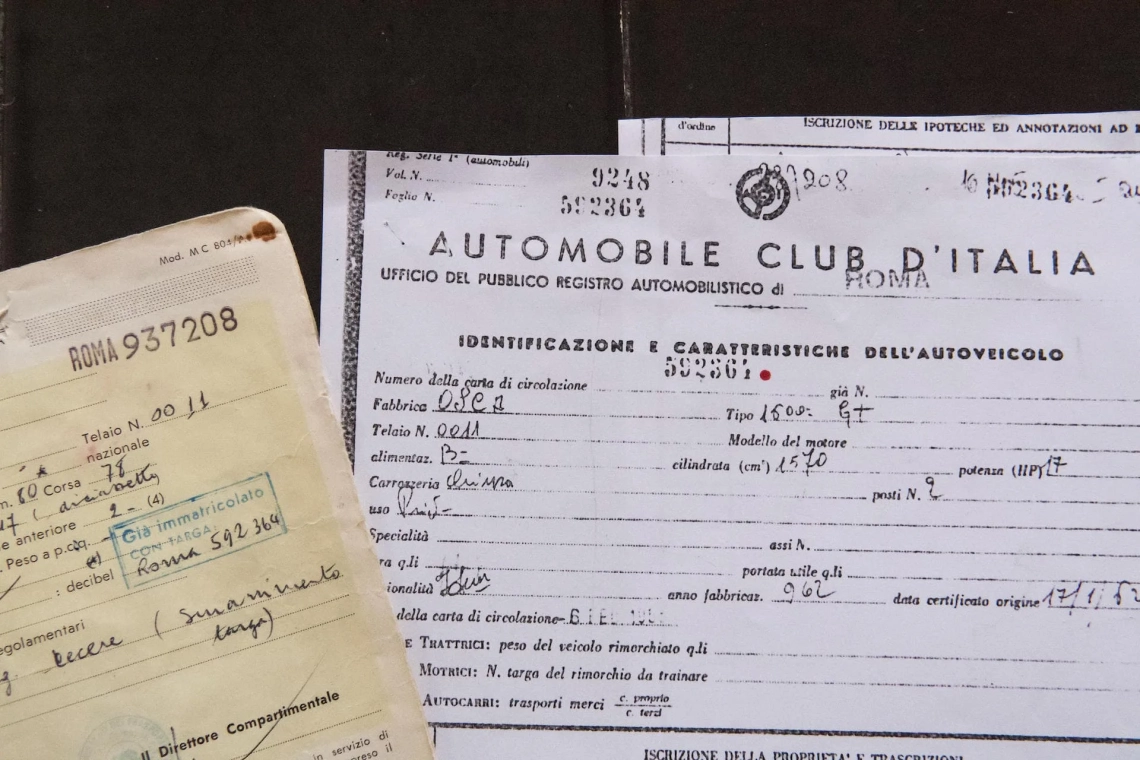 d'ordine
ISCRIZIONE DELLE IPOTECHE ED ANNOTAZIONI AD
Reg. Serie 1ª (automobili)
Vol. N. 9248
Foglio N. 592364
208
592364
AUTOMOBILE CLUB D'ITALIA
UFFICIO DEL PUBBLICO REGISTRO AUTOMOBILISTICO di ROMA
IDENTIFICAZIONE E CARATTERISTICHE DELL'AUTOVEICOLO
Numero della carta di circolazione 592364 già N.
Fabbrica OSCA Tipo 1600 GT
Telaio N. 0011 Modello del motore
alimentaz. B- cilindrata (cm³) 1570 potenza (HP) 17
Carrozzeria chiusa posti N. 2
uso Priv-
Specialità assi N.
ra q.li portata utile q.li
ionalità anno fabbricaz. 962 data certificato origine 17/1/62
della carta di circolazione
E TRATTRICI: peso del veicolo rimorchiato q.li
MOTRICI: N. targa del rimorchio da trainare
AUTOCARRI: trasporti merci c. proprio
c. terzi
ISCRIZIONE DELLA PROPRIETA' E TRASCRIZIONI
Mod. M C 804/
ROMA 937208
Telaio N. 0011
nazionale
m. 80 Corsa 78
e anteriore 2- (4)
Peso a p.c.
: decibel
Già immatricolato
CON TARGA:
Roma 592364
egolamentari
(smarrimento
targa)
Il Direttore Compartimentale
in servizio di
preso il